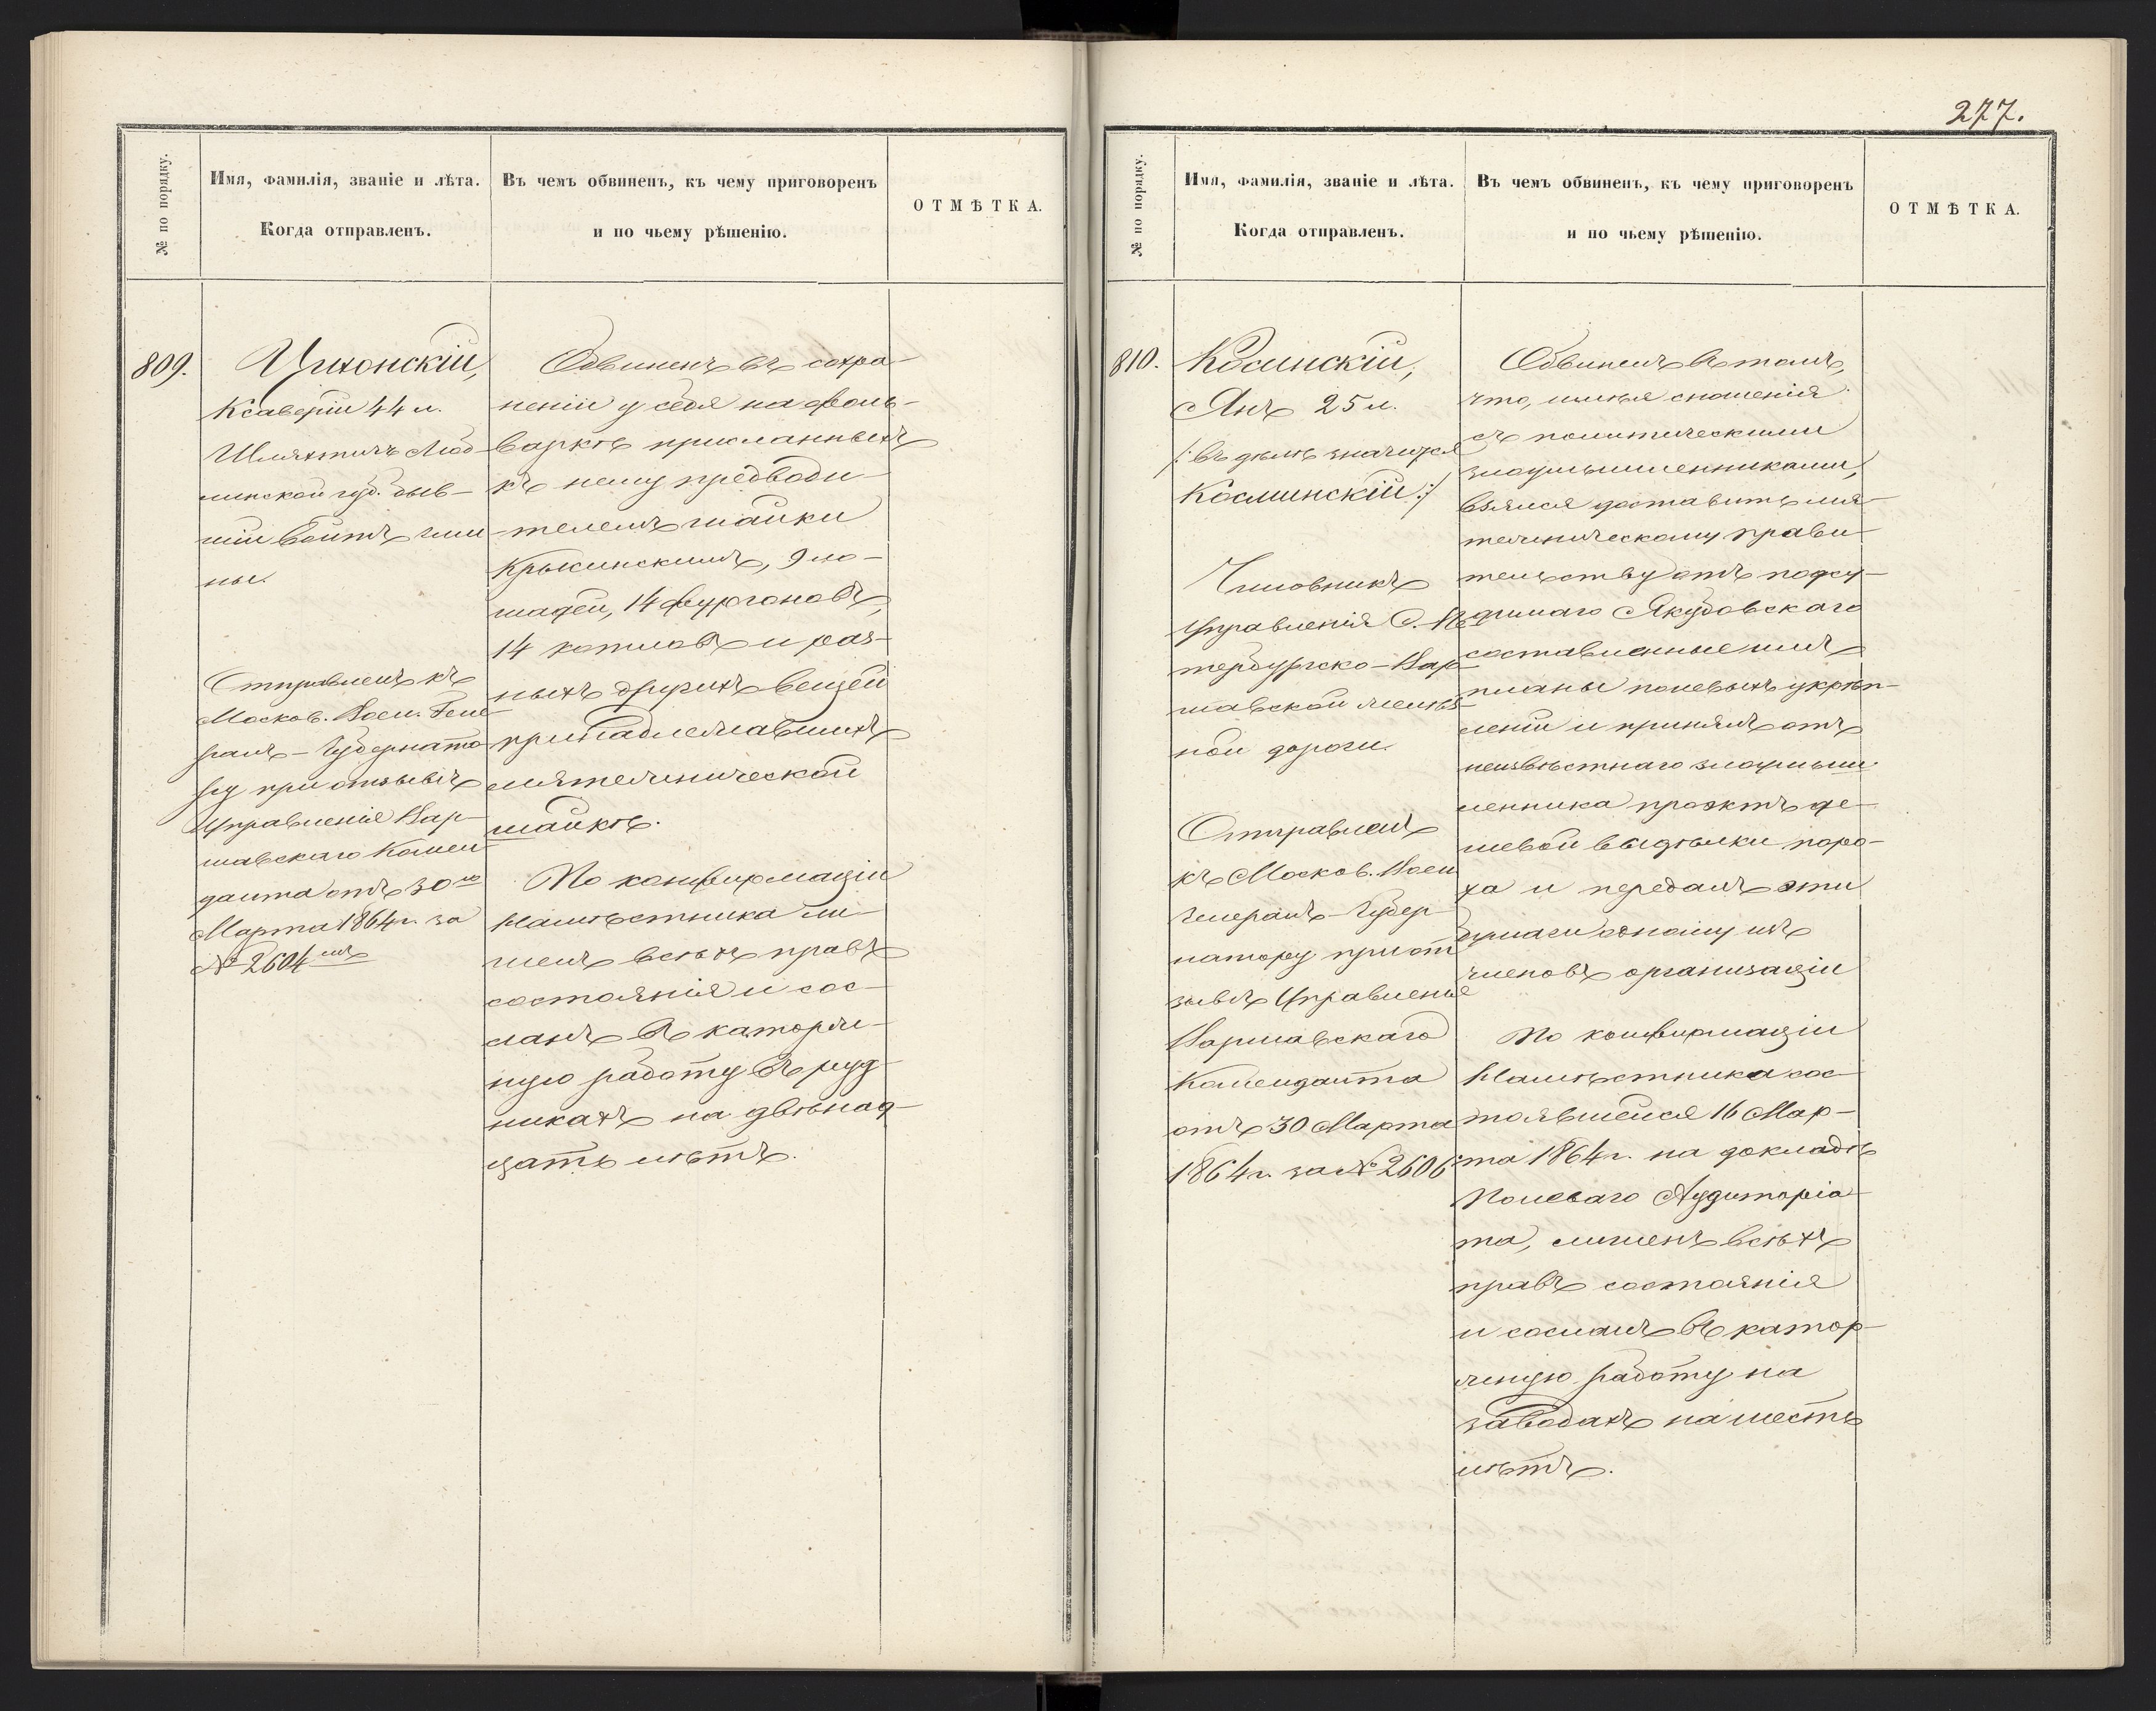 № по порядку.
Имя, фамилія, званіе и лѣта.
Когда отправленъ.
Въ чемъ обвиненъ, къ чему приговоренъ
и по чьему рѣшенію.
ОТМѢТКА.
809.
Цихонскій,
Ксаверій 44 л.
Шляхтичъ Люб-
линской губ. быв-
шій войтъ гми-
ны.
Отправленъ къ
Москов. Воен. Гене-
ралъ-Губернато-
ру при отзывѣ
Управленія Вар-
шавскаго Комен-
данта отъ 30го
Марта 1864 г. за
№ 2604мъ
Обвиненъ въ сохра-
неніи у себя на фоль-
варкѣ присланныхъ
къ нему предводи-
телемъ шайки
Крысинскимъ, 9 ло-
шадей, 14 фургоновъ,
14 котловъ и раз-
ныхъ другихъ вещей
принадлежавшихъ
мятежнической
шайкѣ.
По конфирмаціи
Намѣстника ли-
шенъ всѣхъ правъ
состоянія и сос-
ланъ въ каторж-
ную работу въ руд-
никахъ на двѣнад-
цать лѣтъ.
277.
№ по порядку.
Имя, фамилія, званіе и лѣта.
Когда отправленъ.
Въ чемъ обвиненъ, къ чему приговоренъ
и по чьему рѣшенію.
ОТМѢТКА.
810.
Косинскій,
Янъ 25 л.
/: въ дѣлѣ значится
Косминскій :/
Чиновникъ
Управленія С. Пе-
тербургско-Вар-
шавской желѣз-
ной дороги.
Отправленъ
къ Москов. Воен.
Генералъ-Губер-
натору при от-
зывѣ Управленія
Варшавскаго
Коменданта
отъ 30 Марта
1864 г. за № 2606
Обвиненъ въ томъ,
что, имѣя сношенія
съ политическими
злоумышленниками,
взялся доставить мя-
тежническому прави-
тельству отъ подсу-
димаго Якубовскаго
составленные имъ
планы полевыхъ укрѣп-
леній и принялъ отъ
неизвѣстнаго злоумыш-
ленника проэктъ де-
шевой выдѣлки поро-
ха и передалъ эти
бумаги одному изъ
членовъ организаціи
По конфирмаціи
Намѣстника сос-
тоявшейся 16 Мар-
та 1864 г. на докладѣ
Полеваго Аудиторіа-
та, лишенъ всѣхъ
правъ состоянія
и сосланъ въ катор-
жную работу на
заводахъ на шесть
лѣтъ.